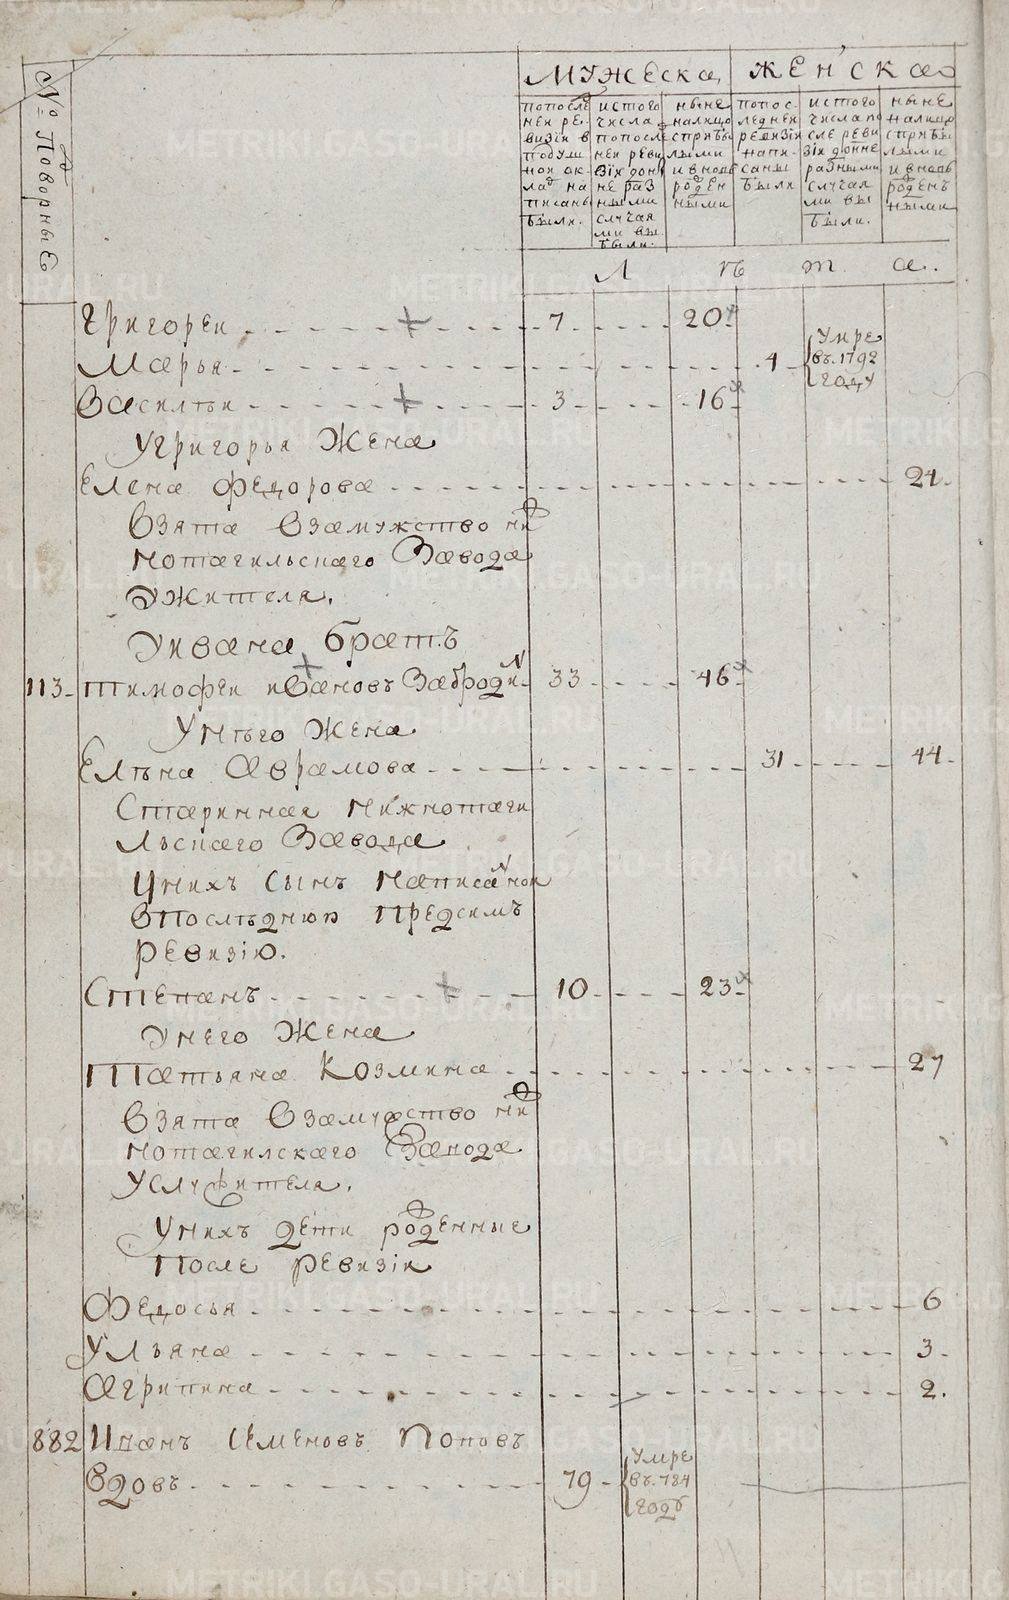 № Подворные
МУЖЕСКА
ЖЕНСКАО
попосле
ней ре
визіи в
подуш
ной ок
лад на
писаны
были.
истого
числа
попосле
ней реви
зіи дон
не раз
ными
случая
ми вы
были.
ныне
налицо
сприбы
лыми
и вновь
рожден
ными
попос
ледней
ревизіи
напи
саны
были
истого
числа по
сле реви
зіи донне
разными
случая
ми вы
были.
ныне
налицо
сприбы
лыми
и вновь
рожденъ
ными
Л ѣ т а.
Григореи 7 20
Марья 1 Умре
въ. 1792
году
Василѣи 3 16
Угригорья Жена
Елена Федорова 21.
Взята Взамужство ни
жнотагильскаго Завода
Ужителя.
Уивана братъ
113 Тимофеи ивановъ Забродин 33 46
Унѣго Жена
Елѣна Аврамова 31 44
Старинная Нижнотаги
льскаго Завода
Унихъ Сынъ написанной
впослѣднюю предсимъ
Ревизію.
Степанъ 10 23
Унего Жена
Татьяна Козмина 27
Взята Взамужство ни
жнотагилскаго Завода
Услужителя.
Унихъ дети рожденные
После Ревизіи
Федосья 6
Ульяна 3
Агрипина 2.
882 Иванъ Семеновъ Поповъ
Вдовъ 79 Умре
въ. 784
годѣ
METRIKI.GASO-URAL.RU